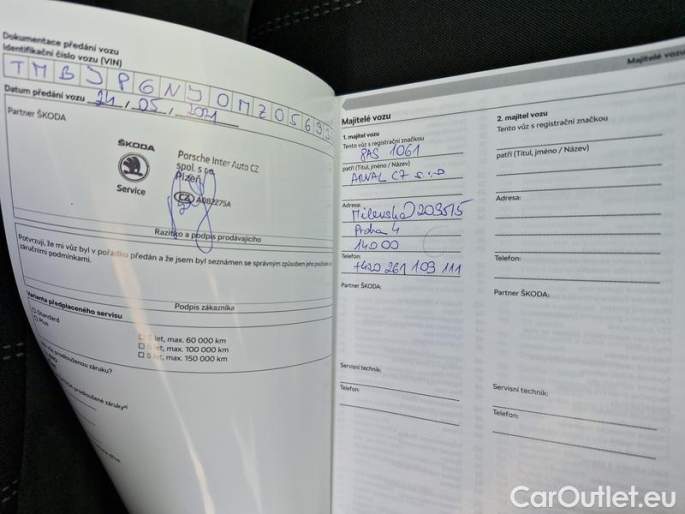 Dokumentace předání vozu
Identifikační číslo vozu (VIN)
TMBJP6NJ0MZ05693
Datum předání vozu 21. 05. 2021
Partner ŠKODA
ŠKODA
Service
Porsche Inter Auto CZ
spol. s r.o.
Plzeň
Razítko a podpis prodávajícího
Potvrzuji, že mi vůz byl v pořádku předán a že jsem byl seznámen se správným způsobem jeho
záručními podmínkami.
Podpis zákazníka
Varianta předplaceného servisu
Standard
Plus
let, max. 60 000 km
let, max. 100 000 km
let, max. 150 000 km
prodlouženou záruku?
prodloužené záruky
Majitelé vozu
Majitelé vozu
1. majitel vozu
Tento vůz s registrační značkou
8AS 1061
patří (Titul, jméno / Název)
ARVAL CZ s.r.o
Adresa:
Milevská 2095/5
Praha 4
140 00
Telefon:
+420 261 109 111
Partner ŠKODA:
Servisní technik:
Telefon:
2. majitel vozu
Tento vůz s registrační značkou
patří (Titul, jméno / Název)
Adresa:
Telefon:
Partner ŠKODA:
Servisní technik:
Telefon:
CarOutlet.eu